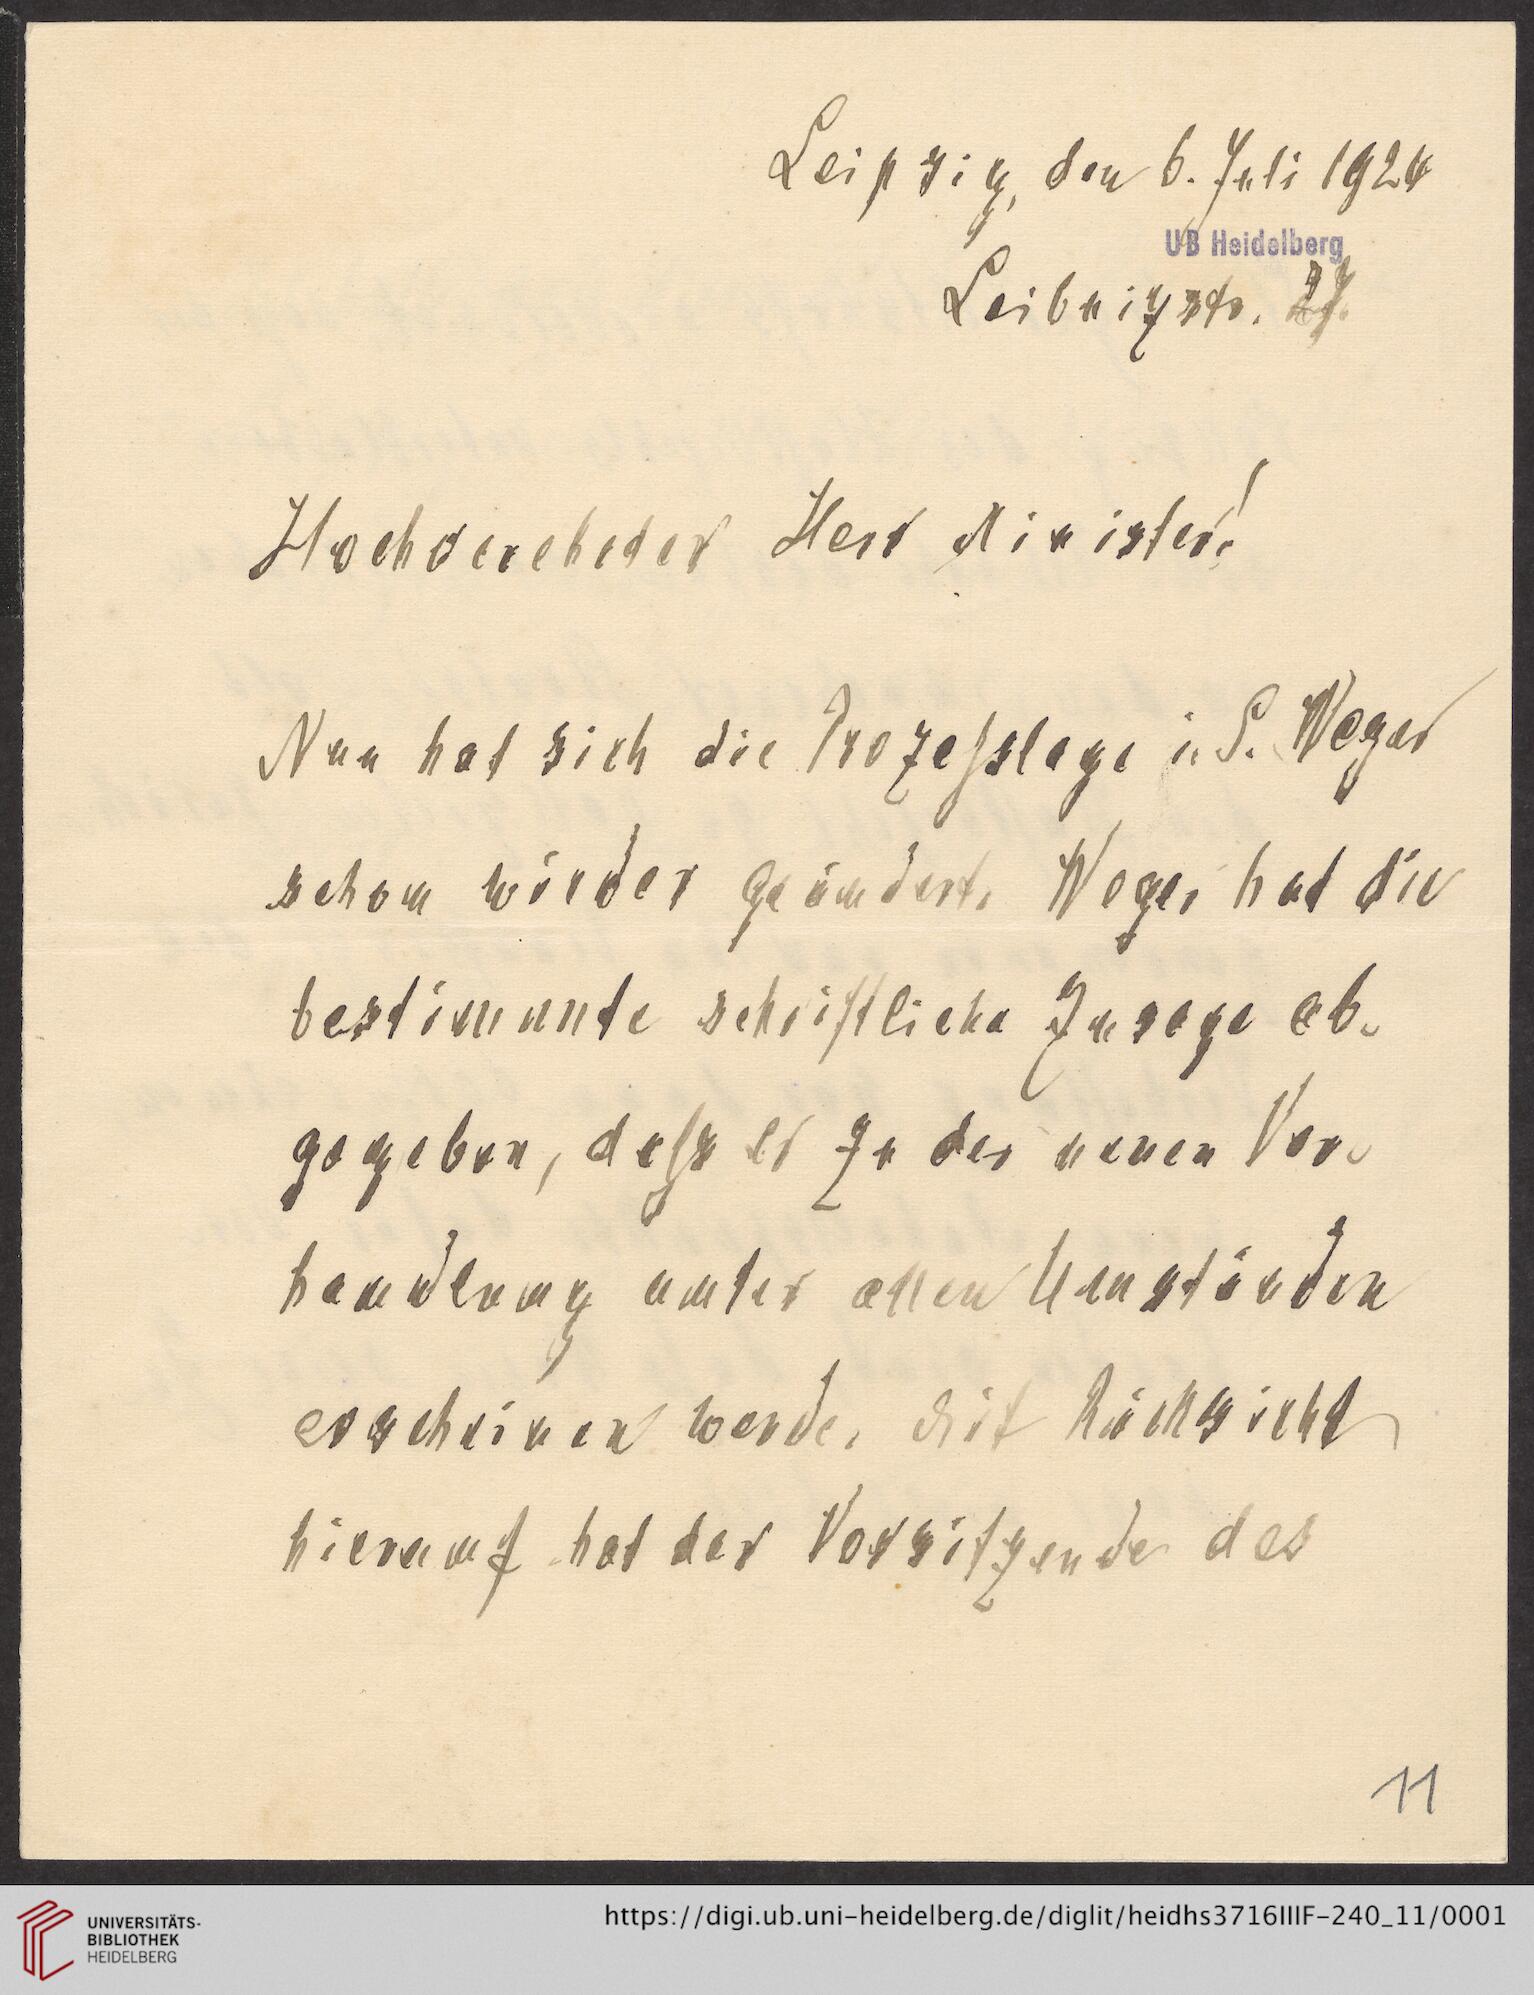 Leipzig, den 6. Juli 1924
UB Heidelberg
Leibnizstr. 27.
Hochverehrter Herr Minister!
Nun hat sich die Prozeßlage i. S. Weger
schon wieder geändert. Weger hat die
bestimmte schriftliche Zusage ab-
gegeben, daß er zu der neuen Ver-
handlung unter allen Umständen
erscheinen werde. Mit Rücksicht
hierauf hat der Vorsitzende des
11
UNIVERSITÄTS-
BIBLIOTHEK
HEIDELBERG
https://digi.ub.uni-heidelberg.de/diglit/heidhs3716IIIF-240_11/0001